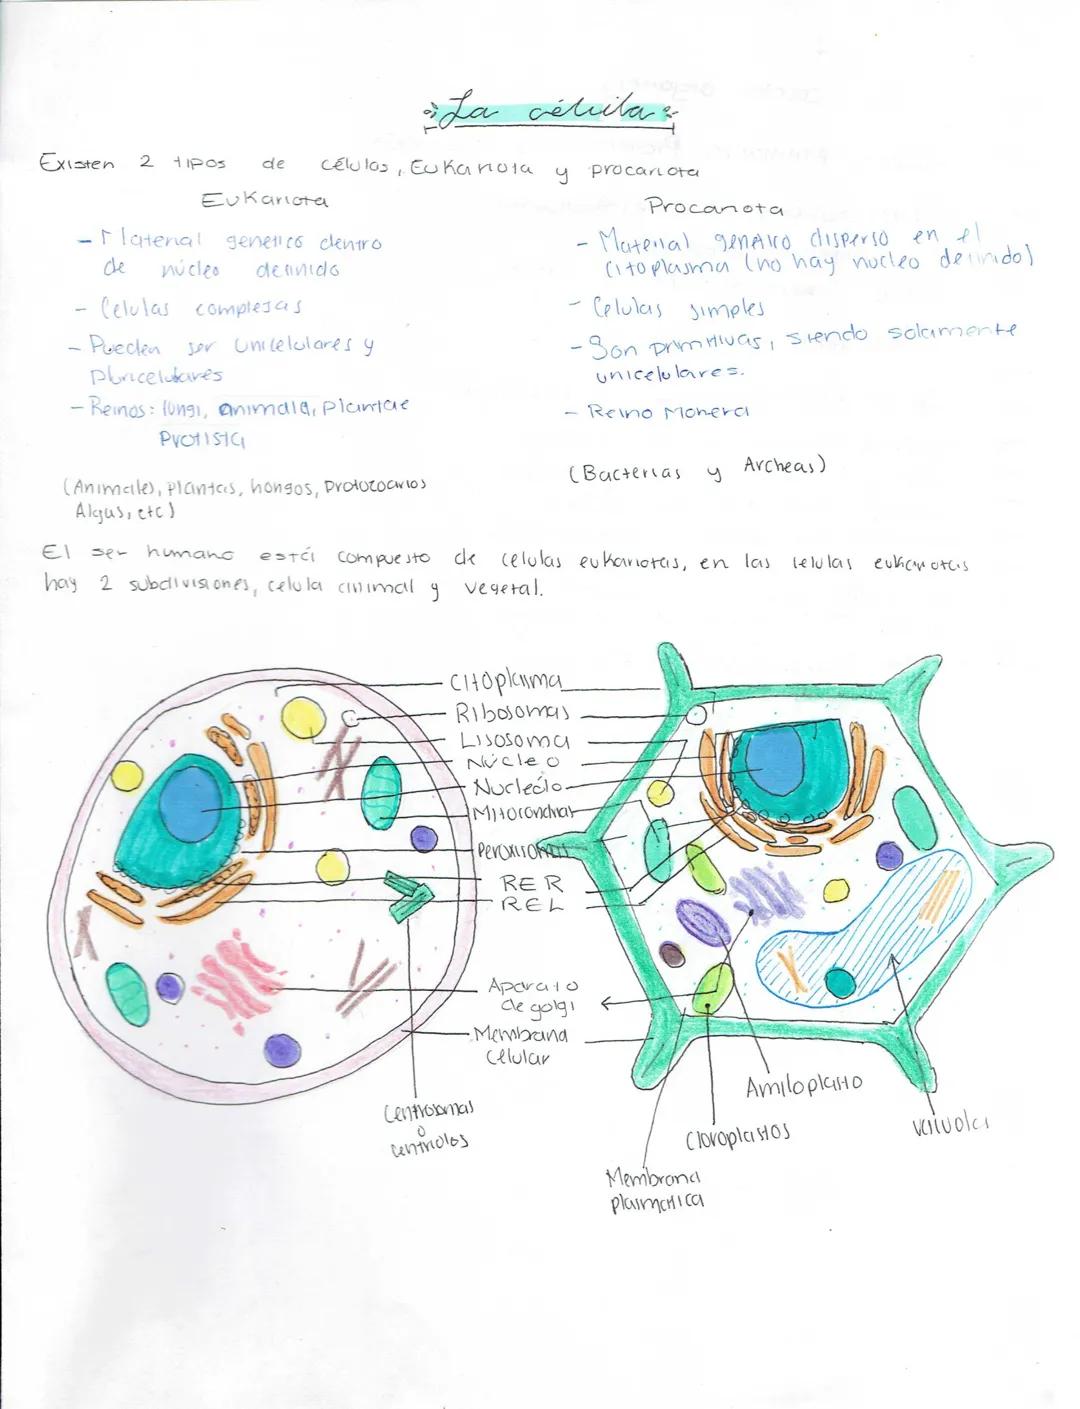 La célula
Existen 2 tipos de células, Eukariota y procariota
Eukariota
- Material genetico dentro
de núcleo definido
- Celulas complejas
- Pueden ser Unicelulares y
pluricelulares
- Reinos: fungi, animalia, Plantae
Protista
(Animales, plantas, hongos, Protozoarios
Algas, etc)
Procariota
- Material genético disperso en el
citoplasma (no hay nucleo definido)
- Celulas simples
- Son primitivas, siendo solamente
unicelulares.
- Reino Monera
(Bacterias y Archeas)
El ser humano está compuesto de celulas eukariotas, en las celulas eukariotas
hay 2 subdivisiones, celula animal y vegetal.
Citoplasma
Ribosomas
Lisosoma
Núcleo
Nucleólo
Mitocondrias
Peroxisomas
RER
REL
Aparato
de golgi
Membrana
celular
Centrosomas
o
centriolos
Amiloplasto
Cloroplastos
Membrana
plasmatica